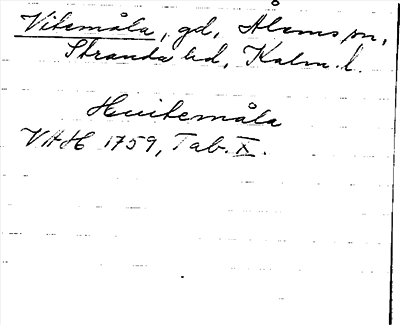 Vitemåla, gd, Ålems sn,
Stranda hd, Kalm. l.
Hvitemåla
VAH 1759, Tab. X.